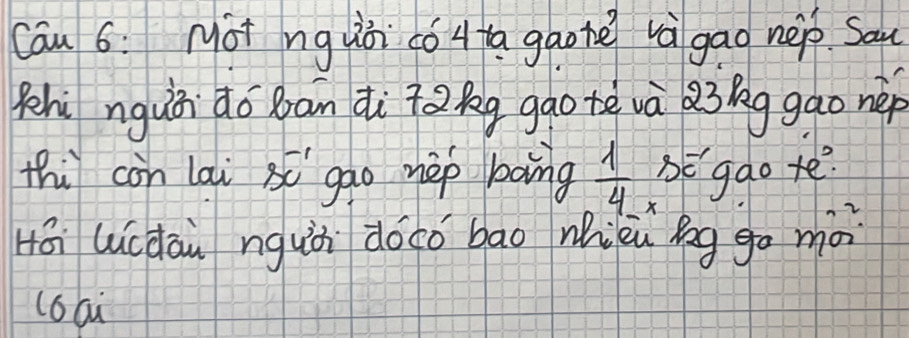 Câu 6: Một người có 4 tạ gạo tẻ và gạo nếp. Sau
khi người đó bán đi 72kg gạo tẻ và 23kg gạo nếp
thì còn lại số gạo nếp bằng 1/4 số gạo tẻ.
Hỏi lúc đầu người đó có bao nhiêu kg gạ mỗi
loại